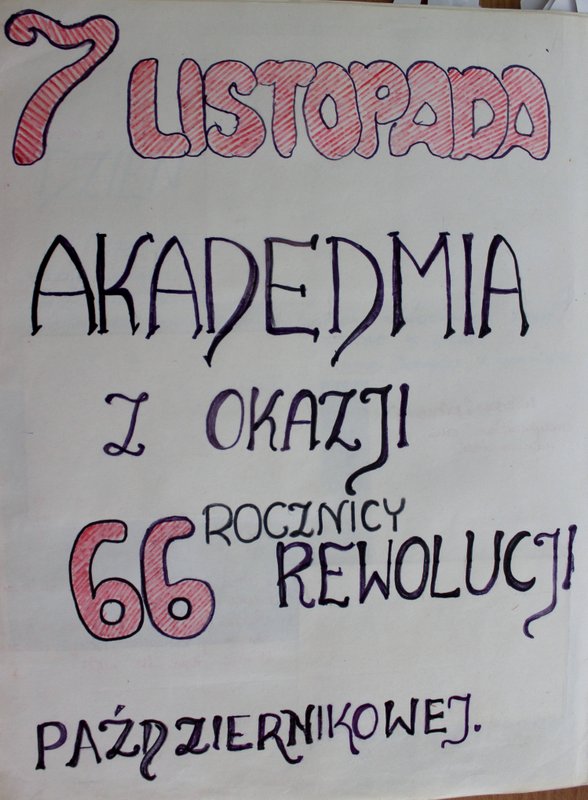 7 LISTOPADA
AKADEDMIA
Z OKAZJI
66 ROCZNICY
REWOLUCJI
PAŹDZIERNIKOWEJ.